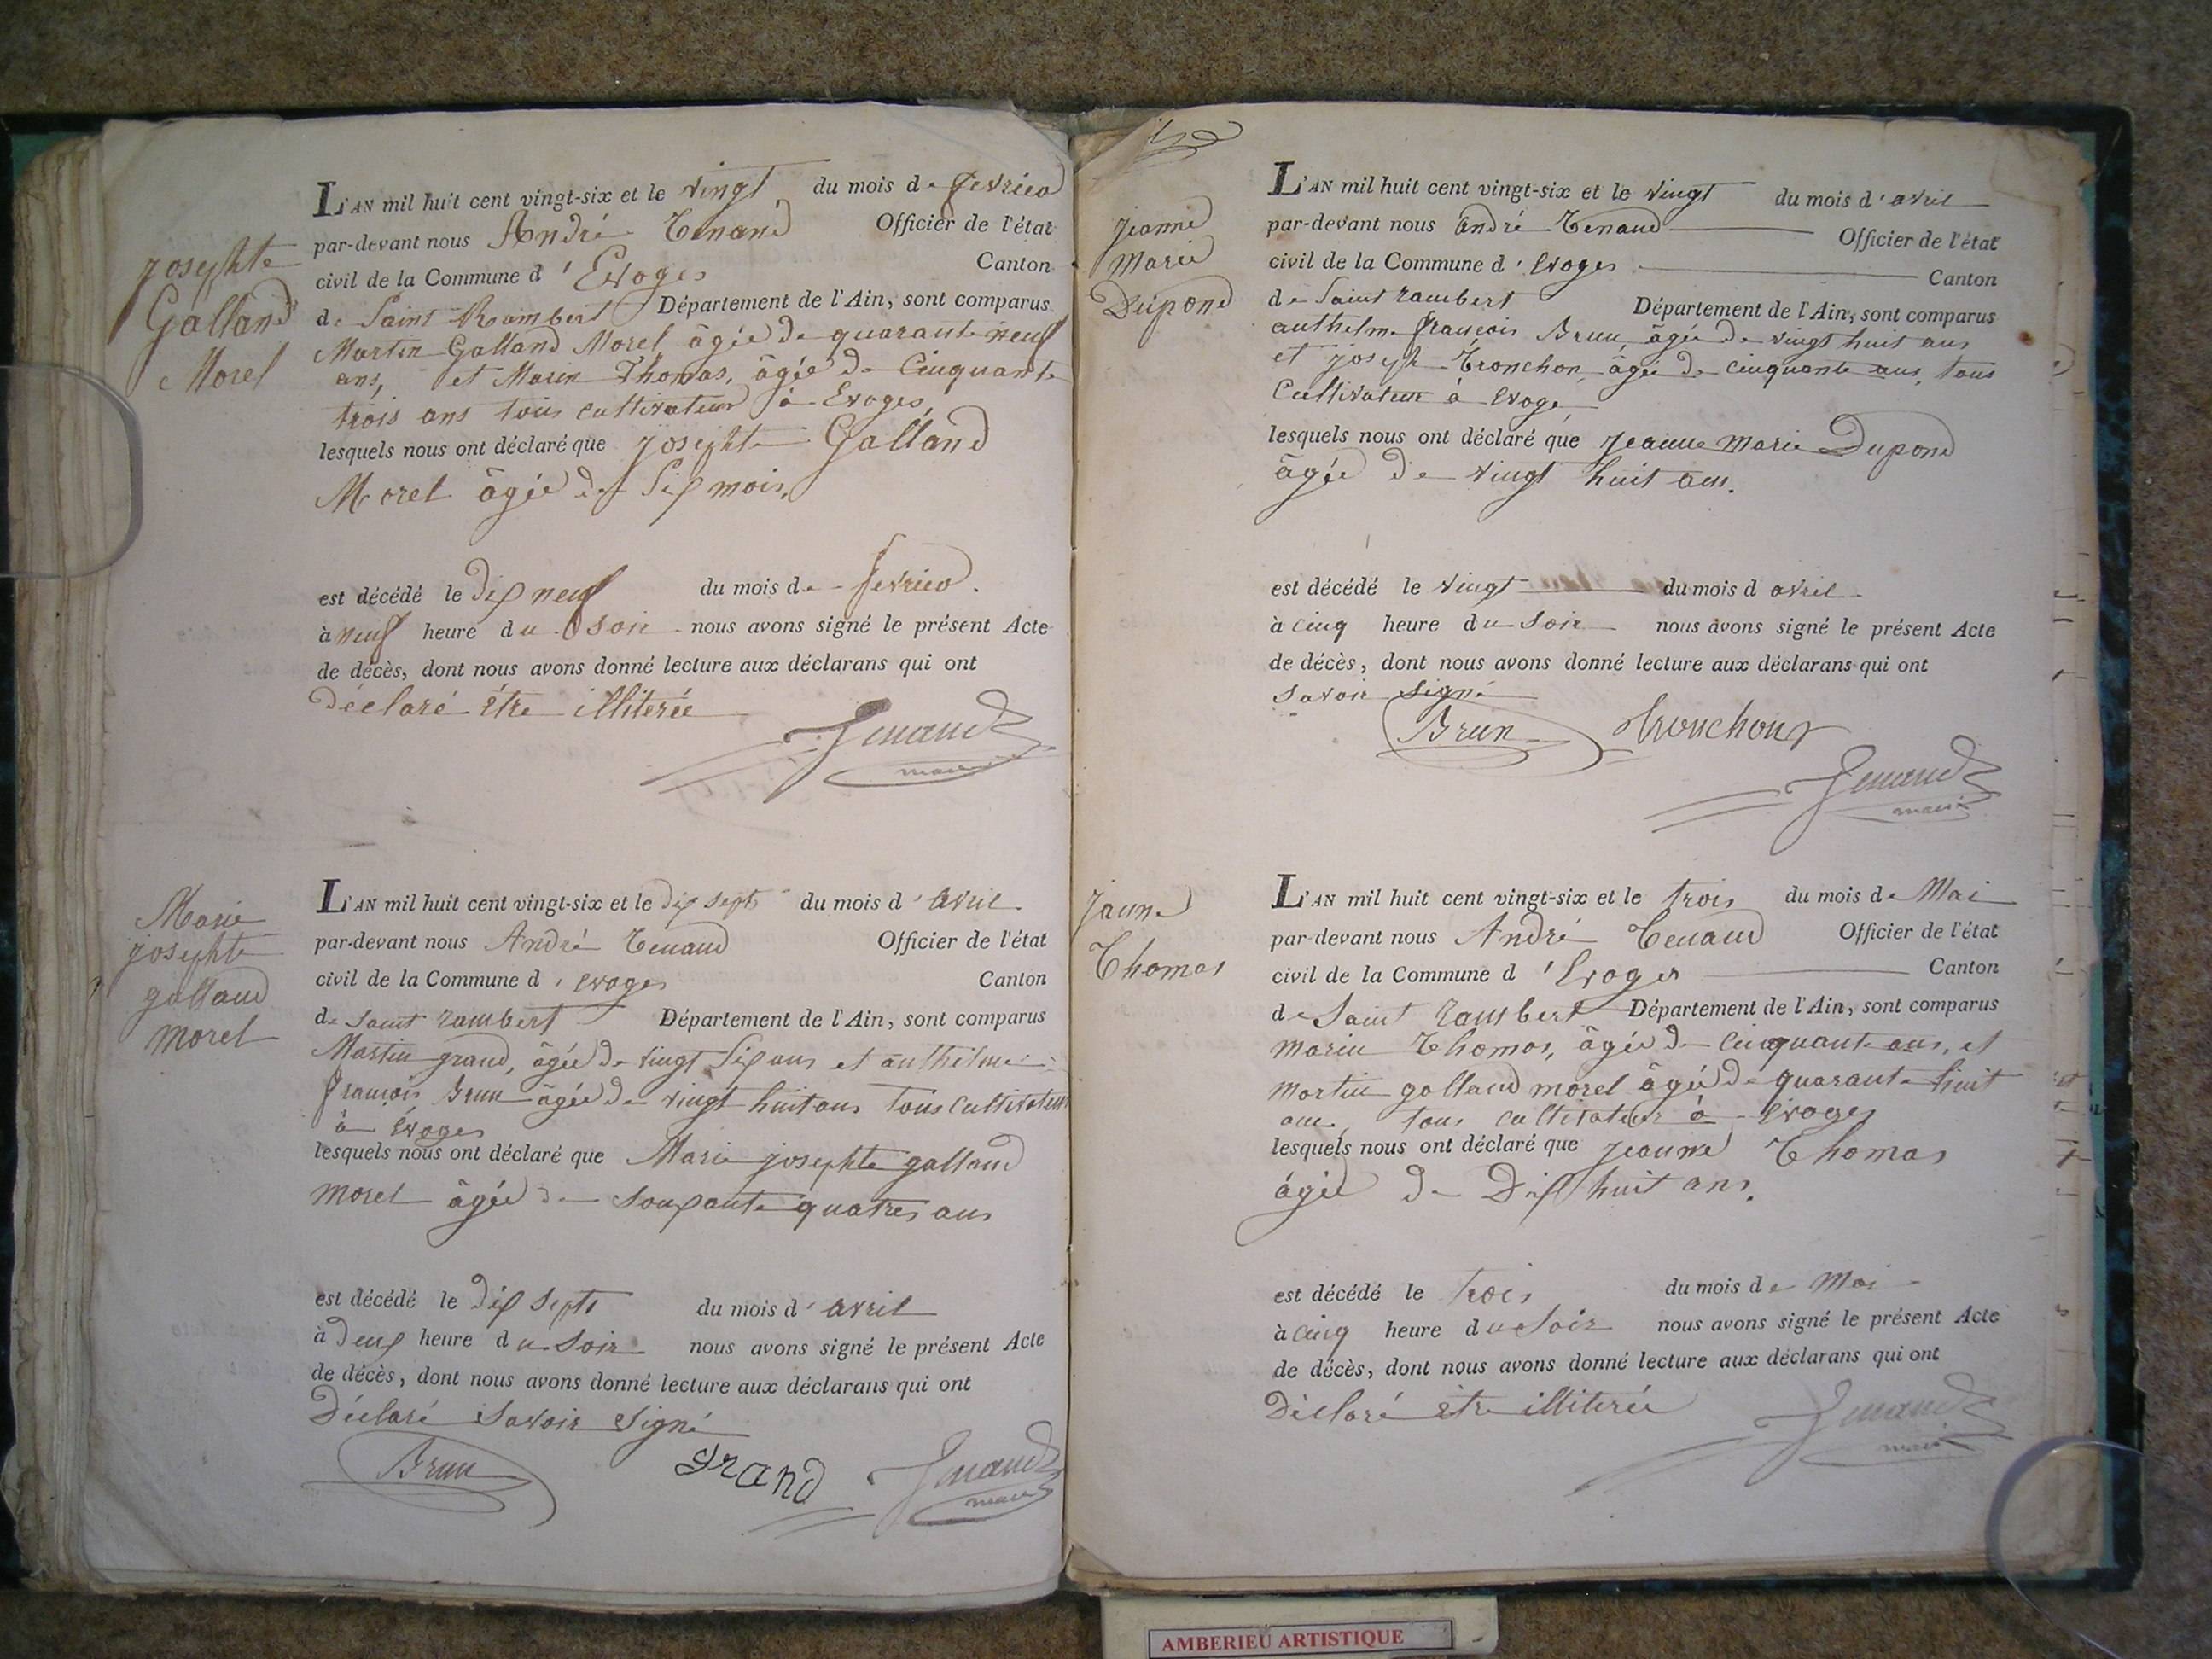 Josephte
Galland
Morel
L'AN mil huit cent vingt-six et le vingt du mois de fevrier
par-devant nous André Tenand Officier de l'état
civil de la Commune d'Evoges Canton
de Saint Rambert Département de l'Ain, sont comparus
Martin Galland Morel âgée de quarante neuf
ans, et Marin Thomas, âgée de Cinquante
trois ans tous cultivateur à Evoges,
lesquels nous ont déclaré que Josephte Galland
Morel âgée de Six mois,
est décédé le dix neuf du mois de fevrier.
à neuf heure du soir nous avons signé le présent Acte
de décès, dont nous avons donné lecture aux déclarans qui ont
Déclaré être illiterée
Tenand
maire
Marie
josephte
galland
morel
L'AN mil huit cent vingt-six et le dix septs du mois d'avril
par-devant nous André Tenand Officier de l'état
civil de la Commune d'evoges Canton
de Saint rambert Département de l'Ain, sont comparus
Martin grand, âgée de vingt Six ans et anthelme
françois Brun âgée de vingt huit ans Tous cultivateur
à Evoges
lesquels nous ont déclaré que Marie josephte galland
morel âgée de Soixante quatres ans
est décédé le dix septs du mois d'avril
à deux heure du Soir nous avons signé le présent Acte
de décès, dont nous avons donné lecture aux déclarans qui ont
Déclaré Savoir Signé
Brun grand Tenand
maire
Jeanne
Marie
Dupond
L'AN mil huit cent vingt-six et le vingt du mois d'avril
par-devant nous André Tenand Officier de l'état
civil de la Commune d'Evoges Canton
de Saint rambert Département de l'Ain, sont comparus
anthelme françois Brun, âgée de vingt huit ans
et joseph Tronchon, âgée de cinquante ans, tous
Cultivateur à Evoge
lesquels nous ont déclaré que Jeanne marie Dupond
âgée de vingt huit ans.
est décédé le vingt du mois d avril
à cinq heure du Soir nous avons signé le présent Acte
de décès, dont nous avons donné lecture aux déclarans qui ont
Savoir Signé
Brun Tronchon
Tenand
maire
Jeanne
Thomas
L'AN mil huit cent vingt-six et le trois du mois de Mai
par-devant nous André Tenand Officier de l'état
civil de la Commune d'Evoges Canton
de Saint Rambert Département de l'Ain, sont comparus
marin Thomas, âgée de cinquante ans, et
martin galland morel âgée de quarante huit
ans, tous cultivateur à Evoges
lesquels nous ont déclaré que Jeanne Thomas
âgée de Dix huit ans.
est décédé le trois du mois de Mai
à cinq heure du Soir nous avons signé le présent Acte
de décès, dont nous avons donné lecture aux déclarans qui ont
Déclaré être illiterée
Tenand
maire
AMBERIEU ARTISTIQUE